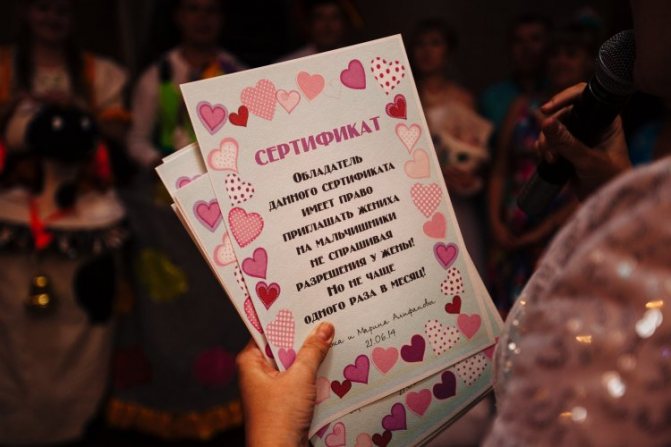 СЕРТИФИКАТ
Обладатель
данного сертификата
имеет право
приглашать жениха
на мальчишники
не спрашивая
разрешения у жены!
Но не чаще
одного раза в месяц!
и Марина Алифанова
21.06.14